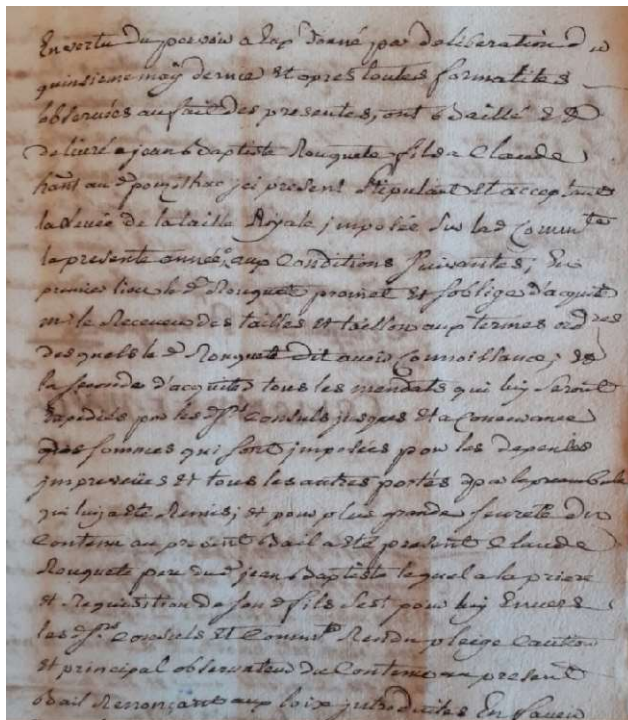 En vertu du pouvoir a donné par deliberation du
quinsieme may dernier et apres toutes formalites
observées au fait des presentes, ont baillé et
delivré a jean baptiste Rouquete fils a Claude
hant au ici present stipulant et acceptant
la levée de la taille Royale imposée sur lad Commté
la presente année, aux Conditions suivantes; En
premier lieu le d Rouquete promet et soblige d'acquiter
mr le Receveur des tailles et taillon aux termes ordres
desquels le d Rouquete dit avoir Connoissance; et
la seconde d'acquiter tous les mendats qui luy seront
expediés par les srs Consuls jusques a la Concurance
des sommes qui sont imposées pour les depenses
impreveües et tous les autres portés par le preambule
qui luy a eté Remis; et pour plus grande seureté du
Contenu au present Bail a eté present Claude
Rouquete pere du jean baptiste lequel a la priere
et Requisition de son d fils sest pour luy Envers
les srs Consuls et Commté Rendu pleige Caution
et principal observateur du Contenu au present
bail Renonçant aux loix introduites En faveur